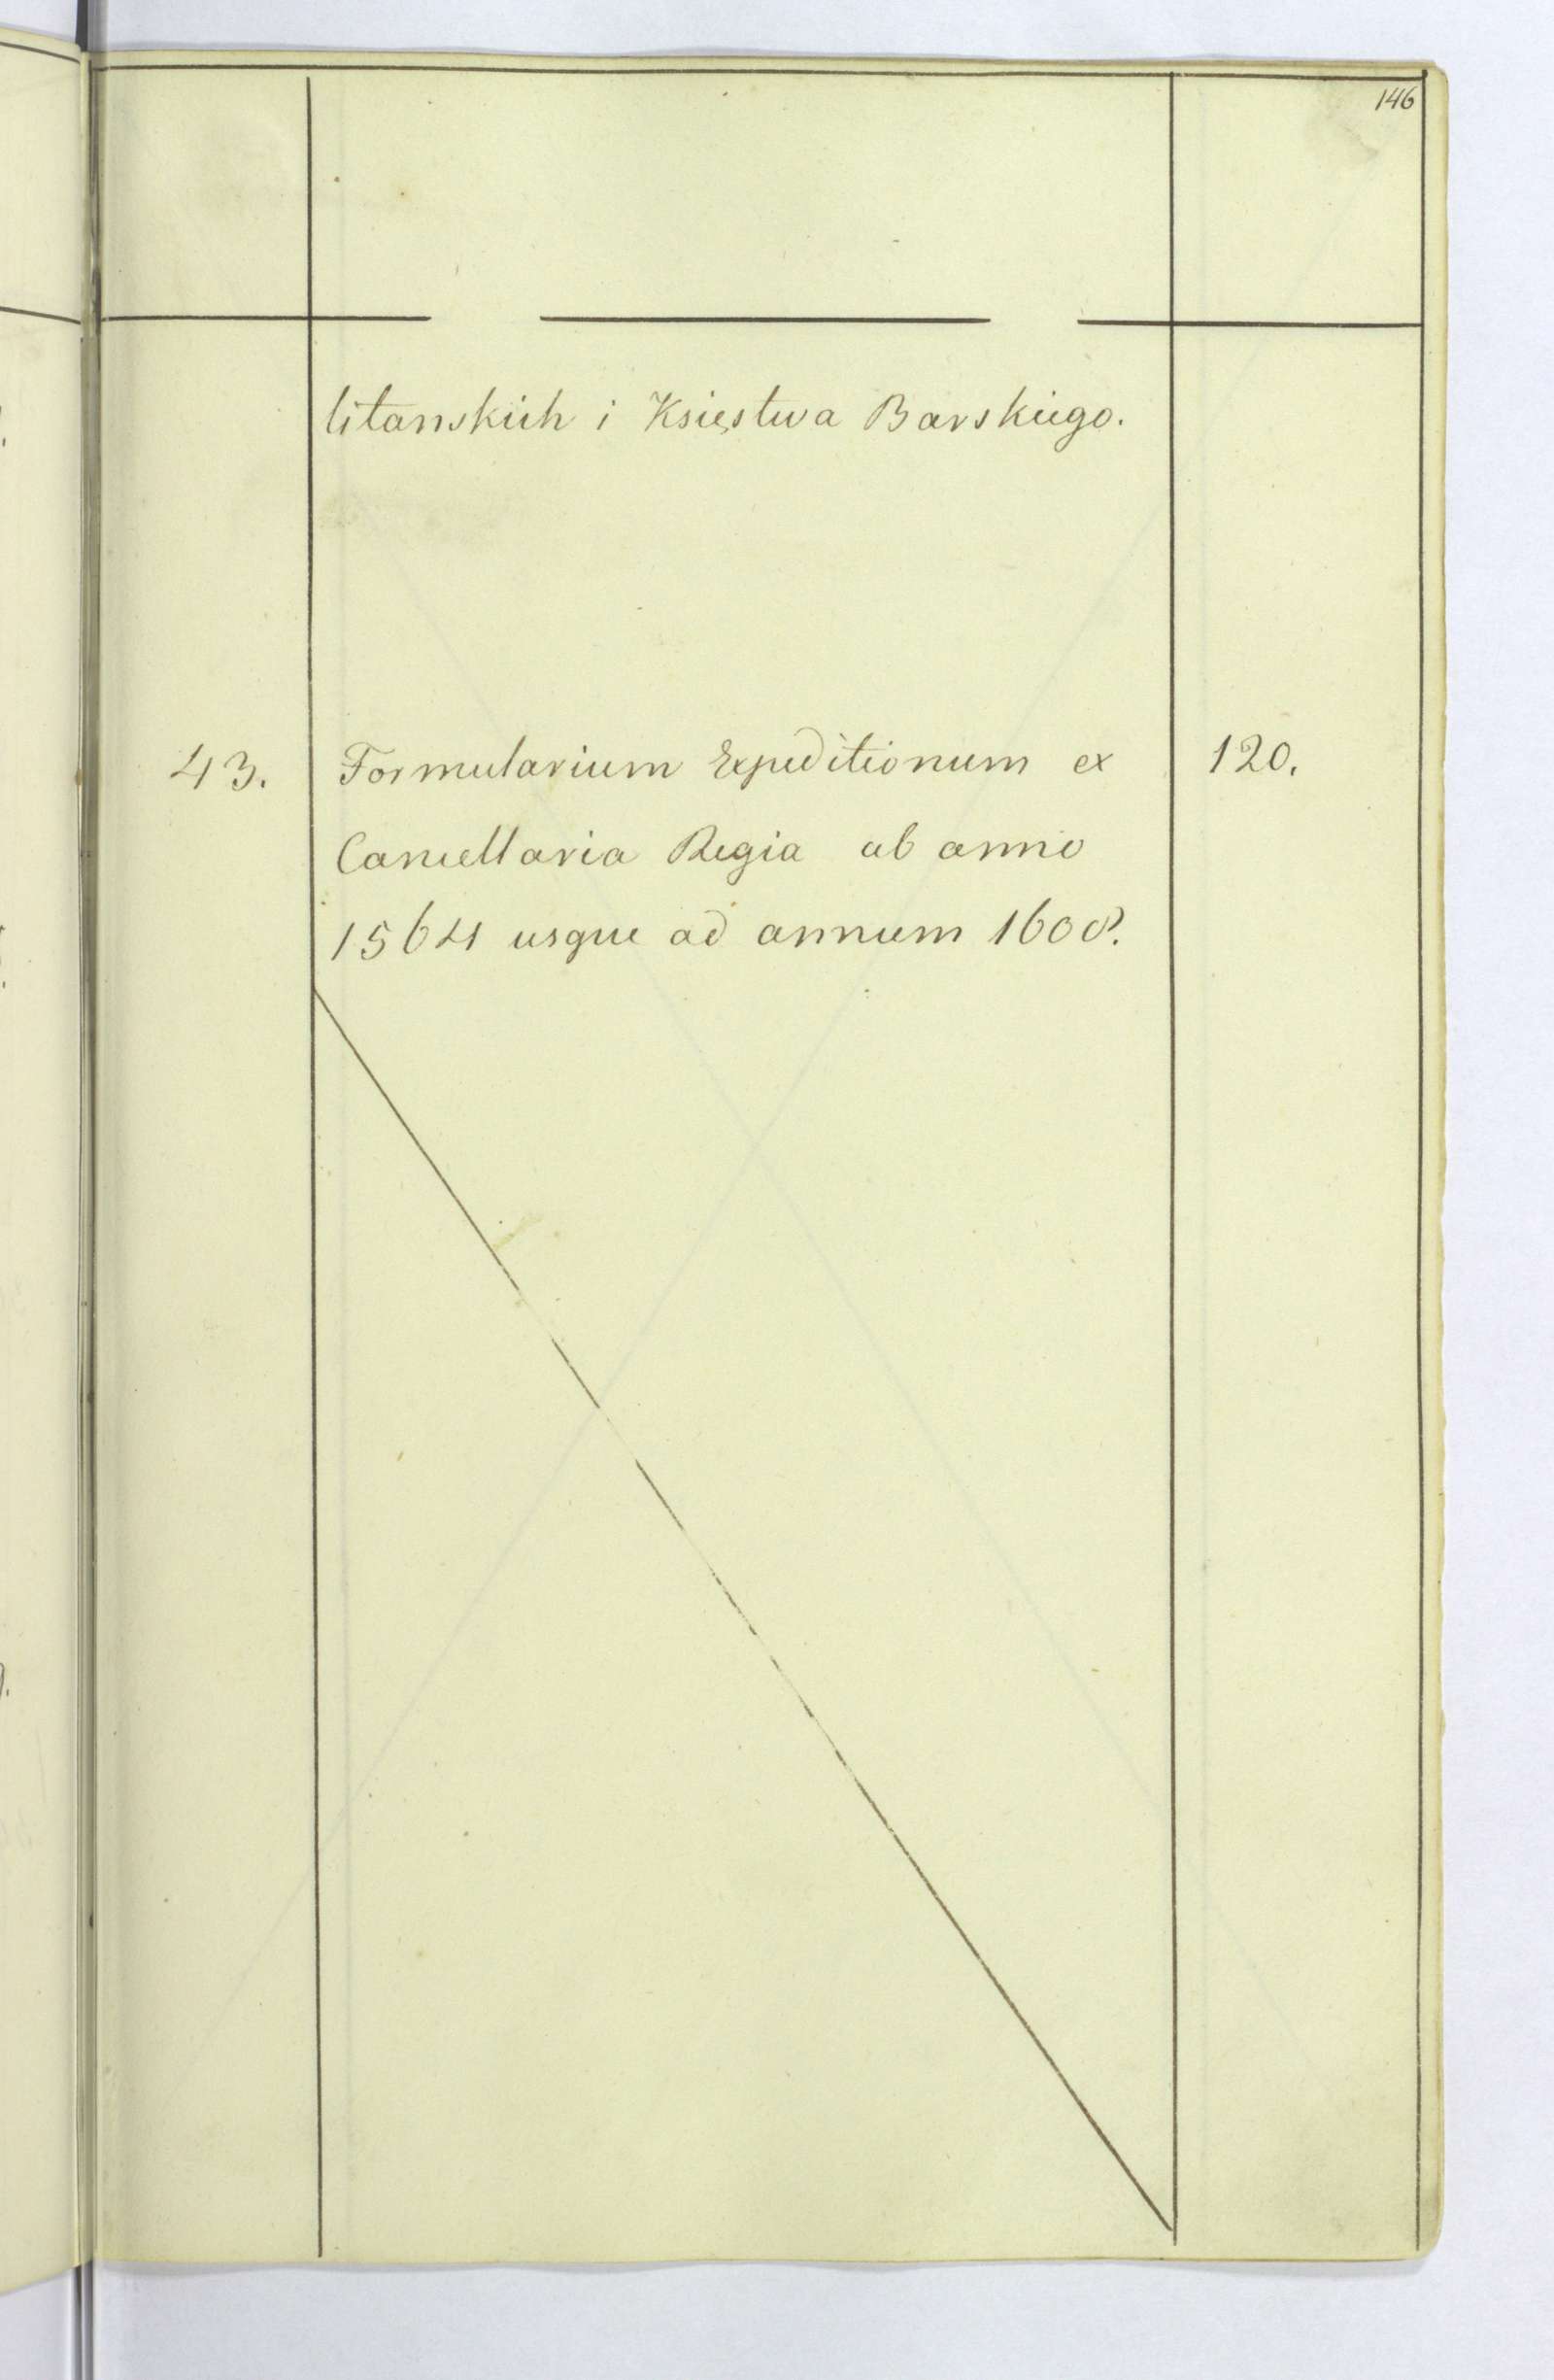 146
litanskich i Księstwa Barskiego.
43. Formularium Expeditionum ex 120.
Cancellaria Regia ab anno
1564 usque ad annum 1608.